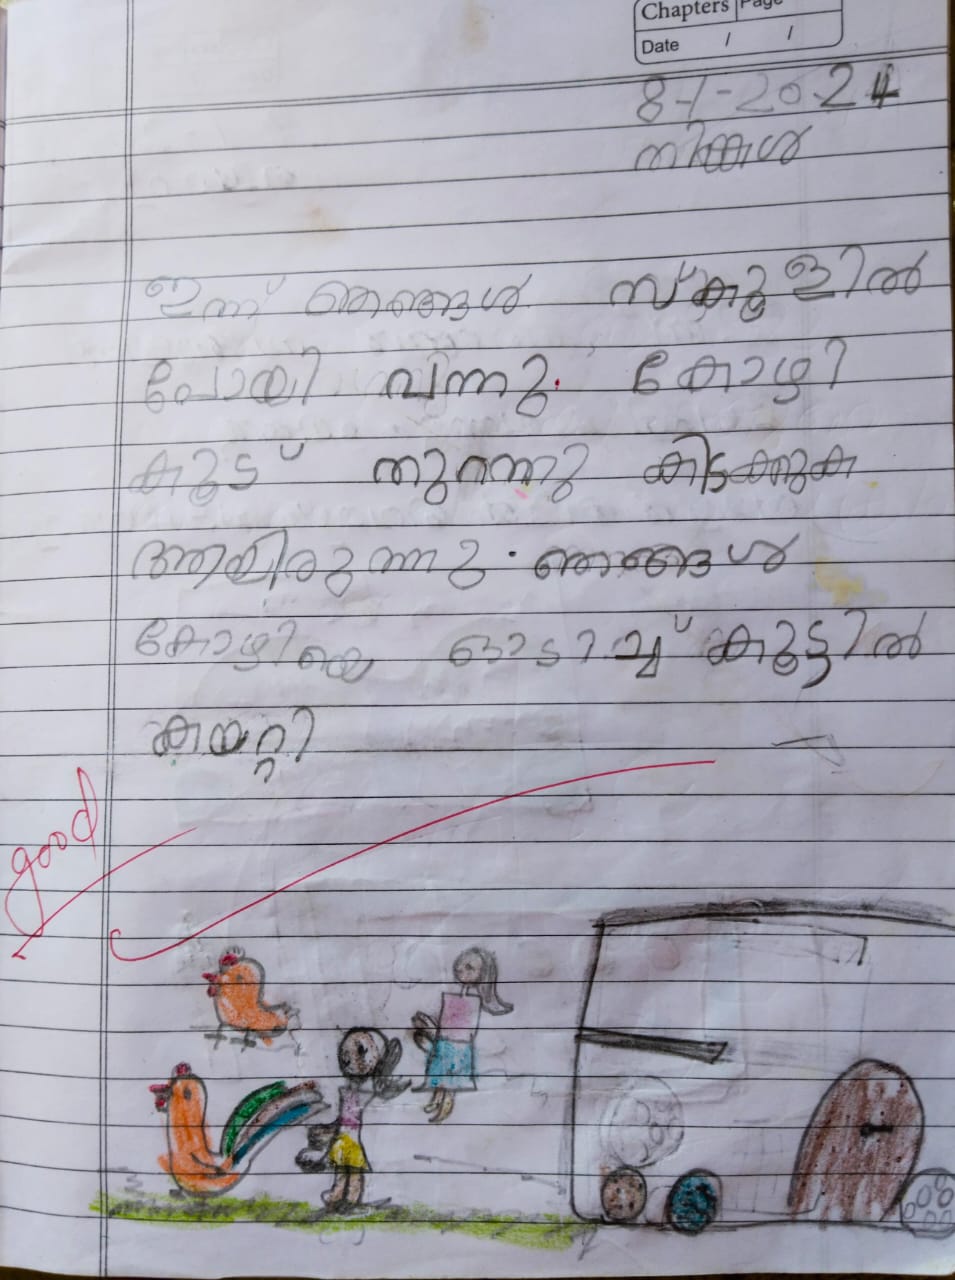 Chapters Page
Date / /
8-1-2024
തിങ്കൾ
ഇന്ന് ഞങ്ങൾ സ്കൂളിൽ
പോയി വന്നു. കോഴി
കൂട് തുറന്നു കിടക്കുക
ആയിരുന്നു. ഞങ്ങൾ
കോഴിയെ ഓടിച്ച് കൂട്ടിൽ
കയറ്റി
good